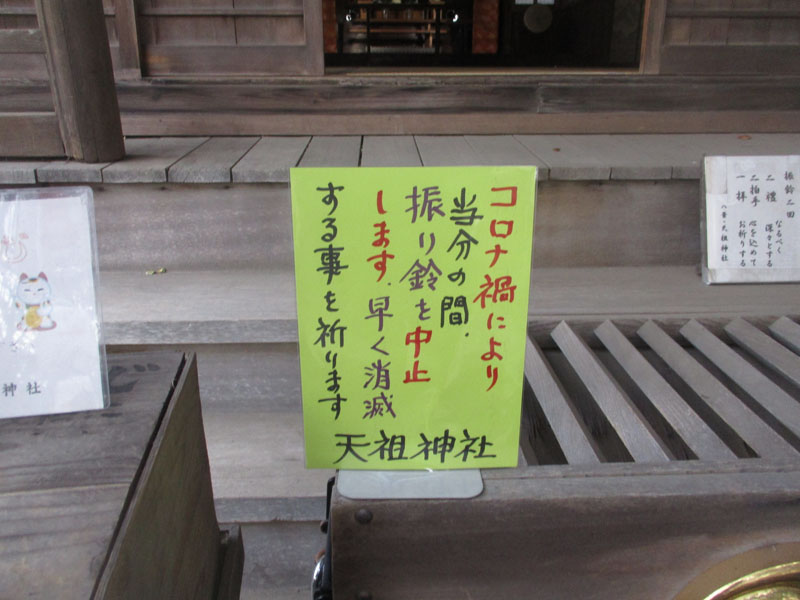 コロナ禍により
当分の間.
振り鈴を中止
します.早く消滅
する事を祈ります
天祖神社
振鈴二回
二禮 なるべく深々とする
二拍手 心を込めて
一拝 お祈りする
天祖神社
神社